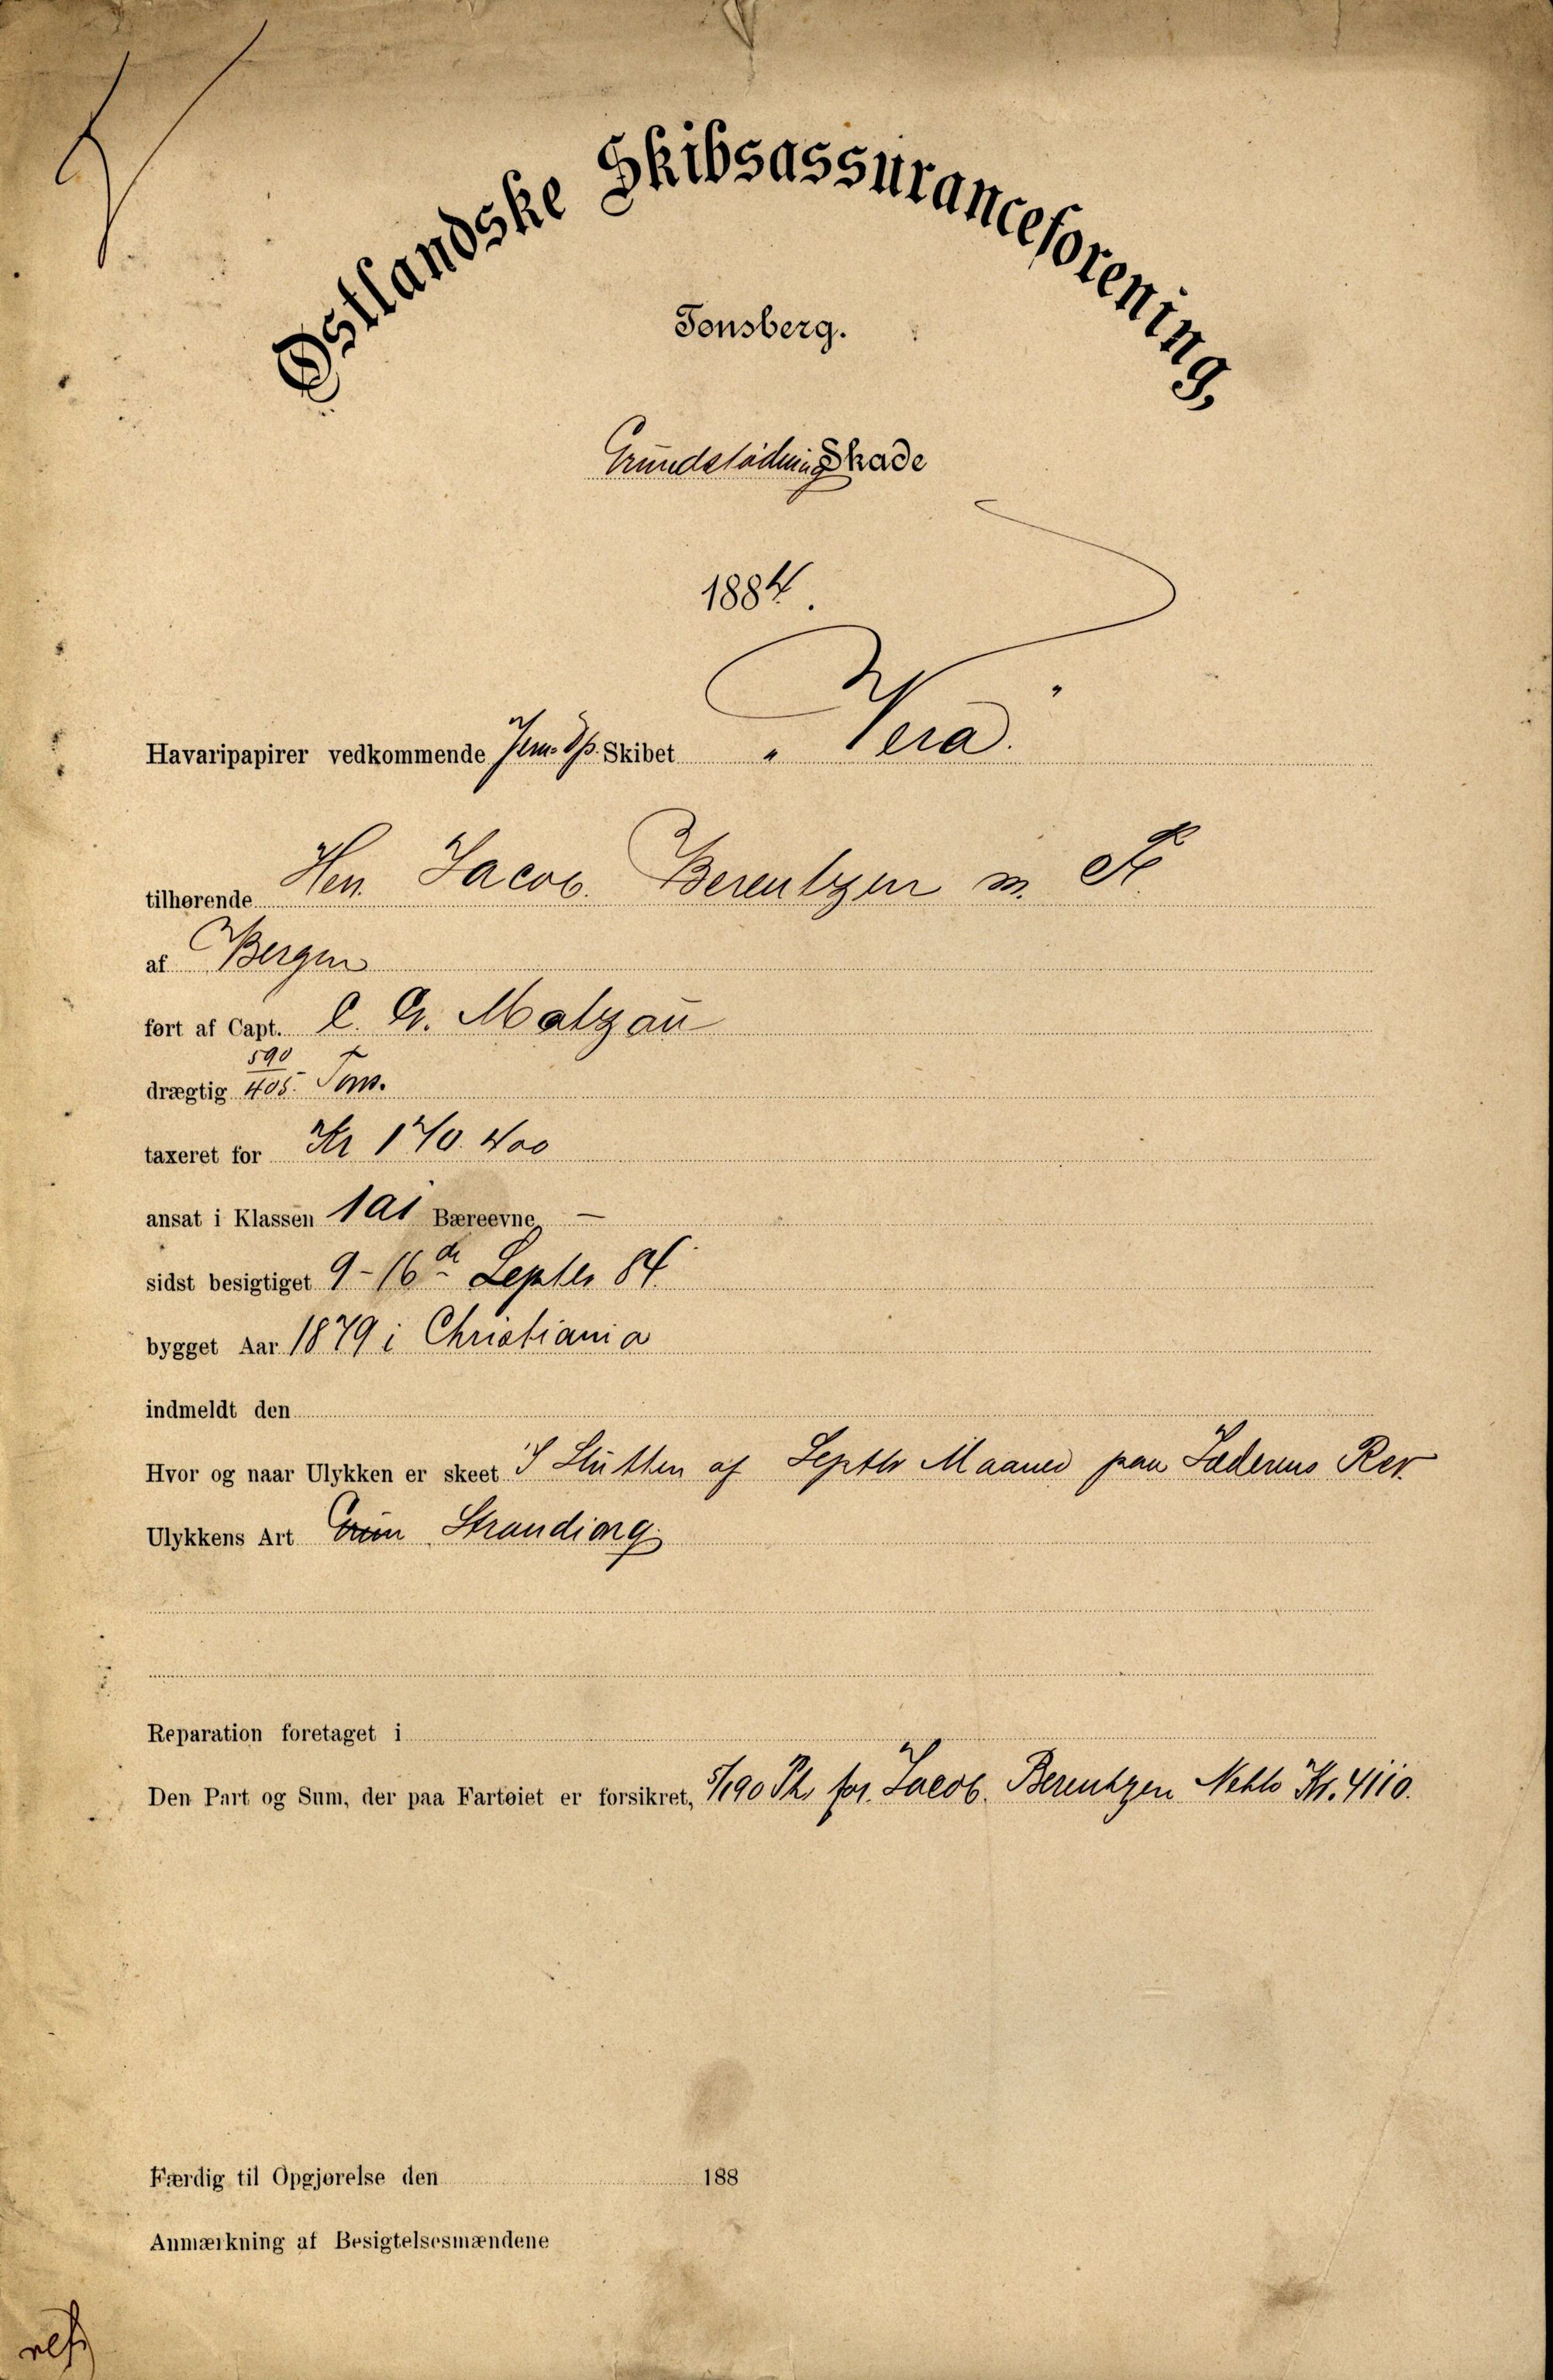 Østlandske Skibsassuranceforening,
Tønsberg.
Grundstødning Skade
1884.
Havaripapirer vedkommende Jern Dp. Skibet „Vera"
tilhørende Herr Jacob Berentzen m. Fl.
af Bergen
ført af Capt. C. G. Matzau
drægtig 590/405 Tons.
taxeret for Kr 170.400
ansat i Klassen 1A1 Bæreevne —
sidst besigtiget 9-16de Septbr 84.
bygget Aar 1879 i Christiania
indmeldt den
Hvor og naar Ulykken er skeet I Slutten af Septbr Maaned paa Jæderens Rev.
Ulykkens Art Grun Strandiong
Reparation foretaget i
Den Part og Sum, der paa Fartøiet er forsikret, 5/190 Pt. for Jacob Berentzen Netto Kr. 4110.
Færdig til Opgjørelse den 188
Anmærkning af Besigtelsesmændene